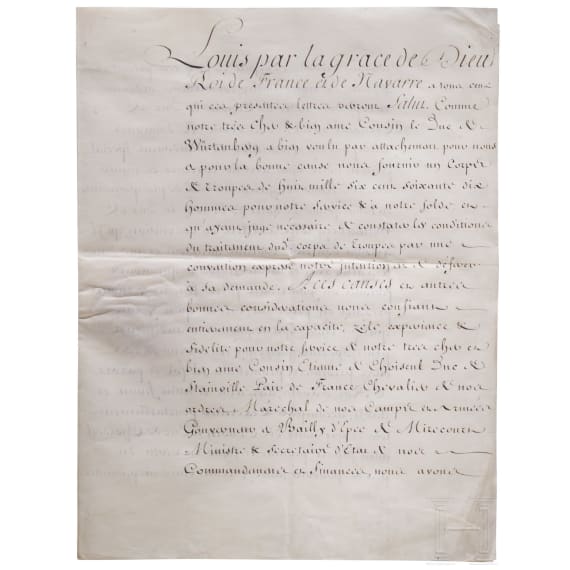 Louis par la grace de Dieu
Roi de France et de Navarre a tous ceux
qui ces presentes lettres verront Salut. Comme
notre tres cher & bien amé Cousin le Duc de
Würtemberg a bien voulu par attachement pour nous
& pour la bonne cause nous fournir un Corps
de troupes de huit mille six cent soixante dix
hommes pour notre service & a notre solde et
qu'ayant jugé nécessaire de constater les conditions
du traitement dud. corps de troupes par une
convention expresse notre intention est de déferer
à sa demande. A ces causes et autres
bonnes considerations nous confiant
entierement en la capacité, zèle, experience &
fidelité pour notre service de notre tres cher et
bien amé Cousin Etienne de Choiseul Duc de
Stainville Pair de France Chevalier de nos
ordres, Maréchal de nos Camps et Armées
Gouverneur & Bailly d'Epée de Mirecourt
Ministre & Secretaire d'Etat de nos
Commandemens et Finances, nous avons